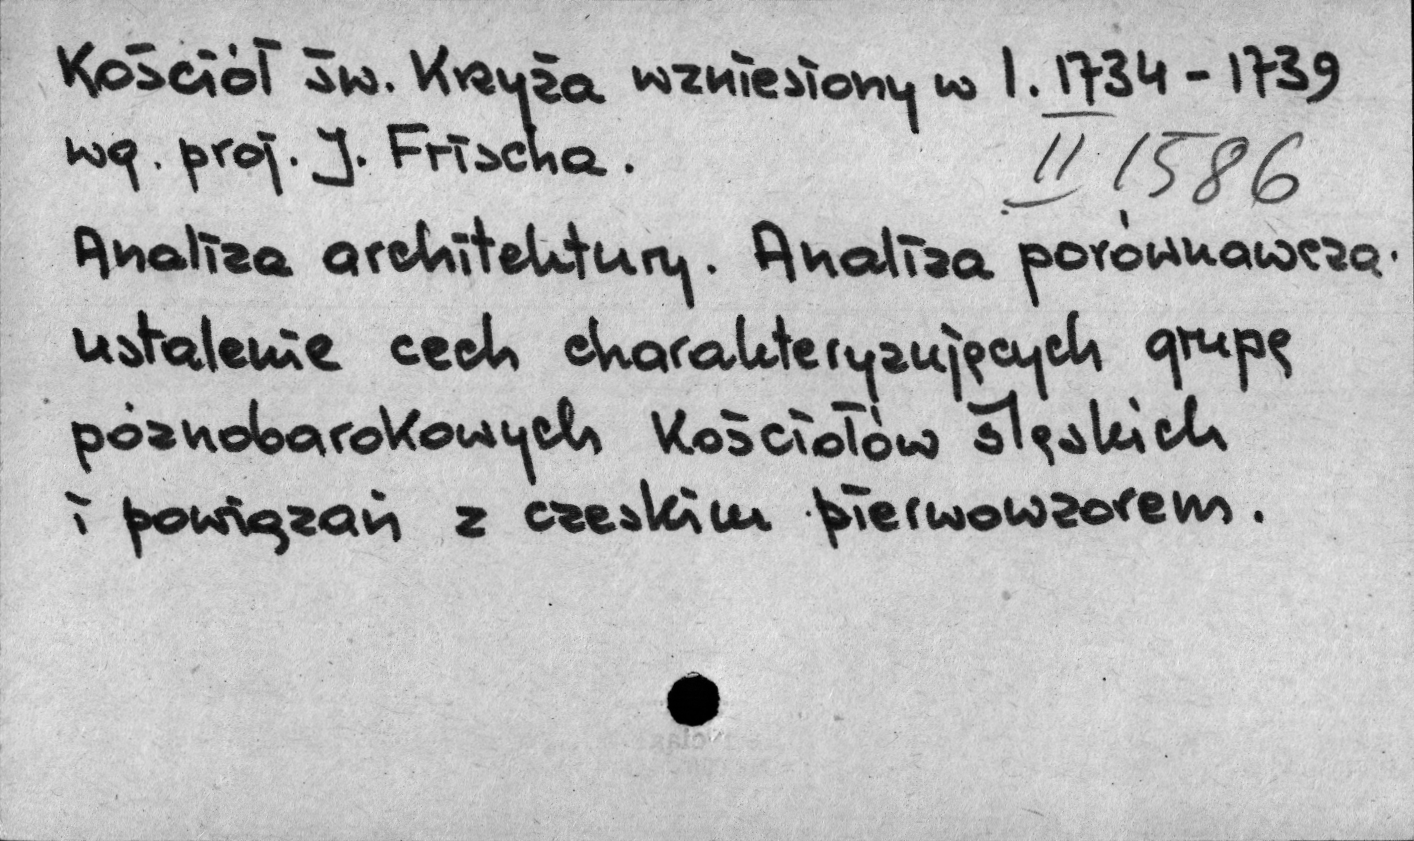 Kościół św. Krzyża wzniesiony w l. 1734 - 1739
wg. proj. J. Frischa.
II 1586
Analiza architektury. Analiza porównawcza.
ustalenie cech charakteryzujęcych grupę
póznobarokowych Kościołów ślęskich
i powiązań z czeskim pierwowzorem.